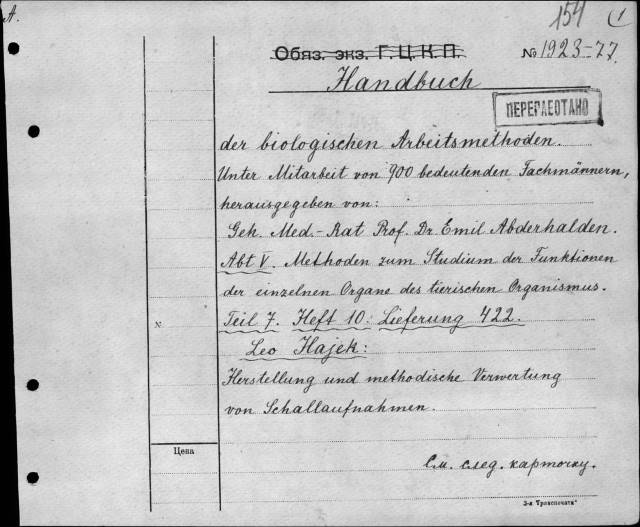 A.
154 1
Обяз. экз. Г.Ц.К.П. № 1923-77.
Handbuch
ПЕРЕРАБОТАНО
der biologischen Arbeitsmethoden.
Unter Mitarbeit von 900 bedeutenden Fachmännern,
herausgegeben von:
Geh. Med.-Rat Prof. Dr. Emil Abderhalden.
Abt V. Methoden zum Studium der Funktionen
der einzelnen Organe des tierischen Organismus.
Teil 7. Heft 10: Lieferung 422.
Leo Hajek:
Herstellung und methodische Verwertung
von Schallaufnahmen.
№
Цена
См. след. карточку.
3-я "Транспечати"